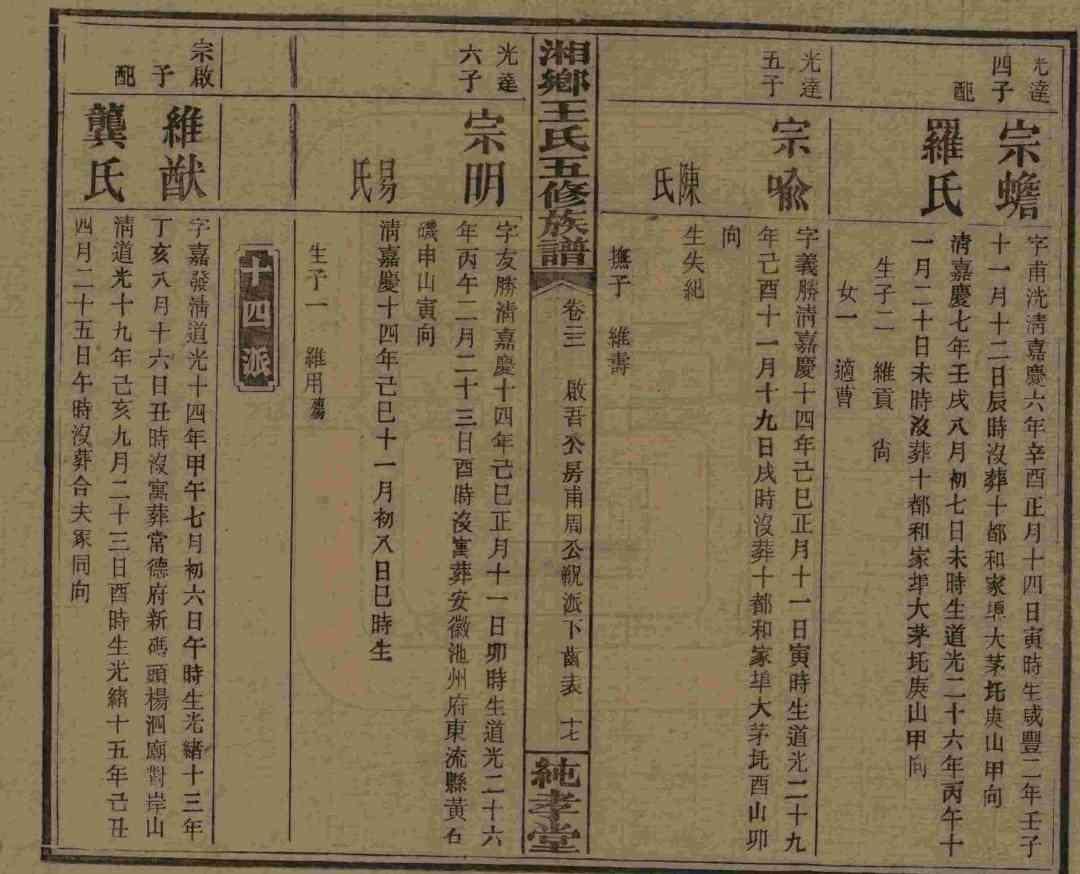 光達
四子
宗蟾
字甫洗清嘉慶六年辛酉正月十四日寅時生咸豐二年壬子
十一月十二日辰時沒葬十都和家埠大茅坵庚山甲向
配
羅氏
清嘉慶七年壬戌八月初七日未時生道光二十六年丙午十
一月二十日未時沒葬十都和家埠大茅坵庚山甲向
生子二 維貢 尙
女一 適曹
光達
五子
宗喻
字義勝清嘉慶十四年己巳正月十一日寅時生道光二十九
年己酉十一月十九日戌時沒葬十都和家埠大茅坵酉山卯
向
陳氏
生失紀
撫子 維壽
湘鄉王氏五修族譜
卷三 啟吾公房甫周公親派下齒表 十七
純孝堂
光達
六子
宗明
字友勝清嘉慶十四年己巳正月十一日卯時生道光二十六
年丙午二月二十三日酉時沒寓葬安徽池州府東流縣黃石
磯申山寅向
易氏
清嘉慶十四年己巳十一月初八日巳時生
生子一 維用
十四派
宗啟
子
維猷
字嘉發清道光十四年甲午七月初六日午時生光緒十三年
丁亥八月十六日丑時沒寓葬常德府新碼頭楊泗廟對岸山
配
龔氏
清道光十九年己亥九月二十三日酉時生光緒十五年己丑
四月二十五日午時沒葬合夫冢同向